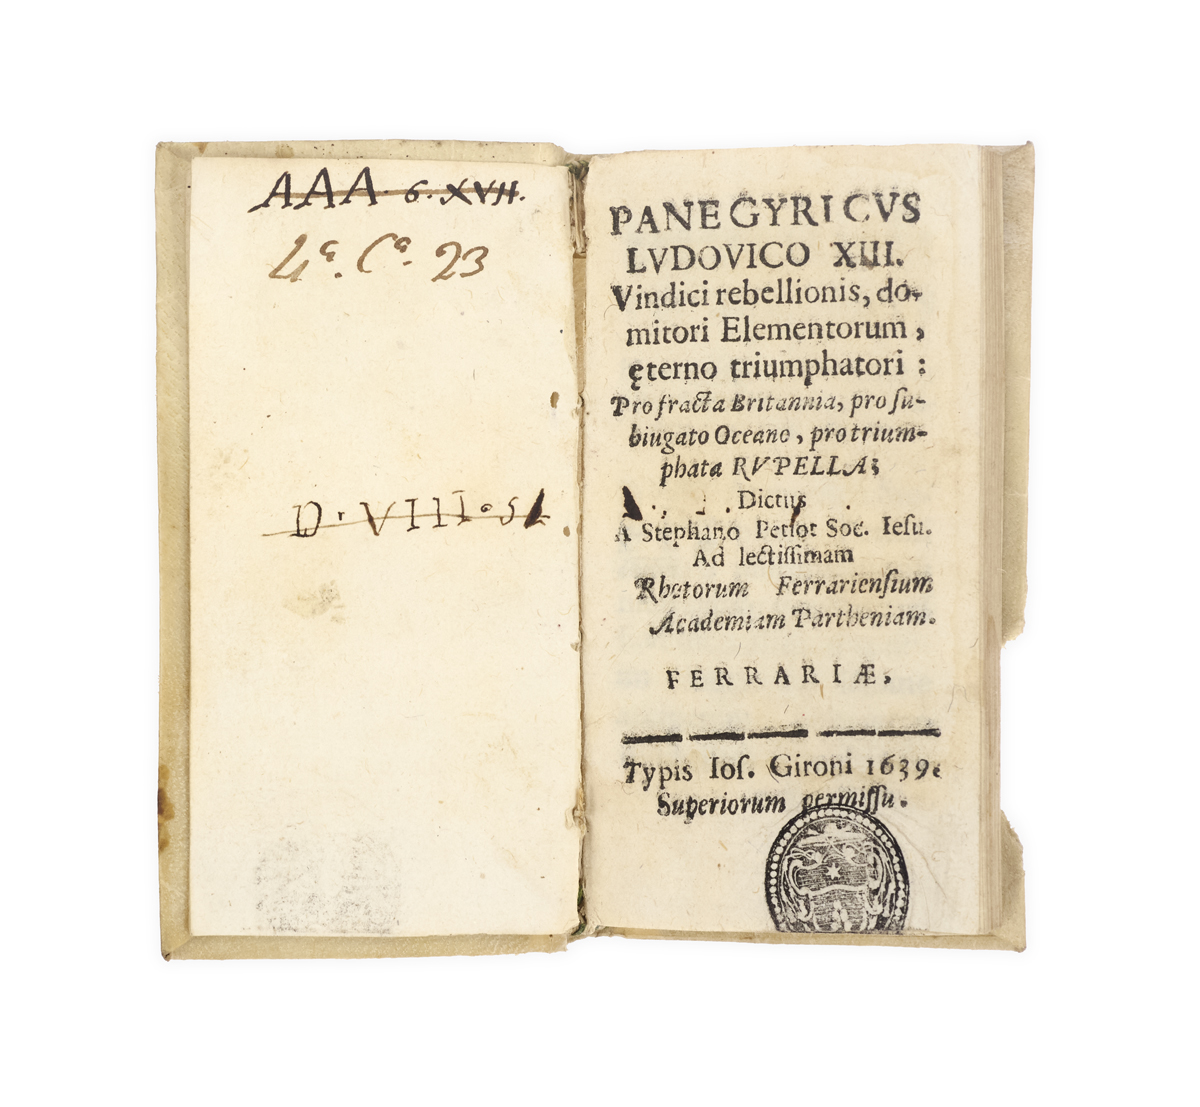 AAA. 6. XVII.
4ª. Cª. 23
D. VIII. 5
PANEGYRICVS
LVDOVICO XIII.
Vindici rebellionis, do-
mitori Elementorum,
ęterno triumphatori:
Pro fracta Britannia, pro ſu-
biugato Oceano, pro trium-
phata RVPELLA;
Dictus
A Stephano Petiot Soc. Ieſu.
Ad lectiſſimam
Rhetorum Ferrarienſium
Academiam Partheniam.
FERRARIÆ,
Typis Ioſ. Gironi 1639.
Superiorum permiſſu.